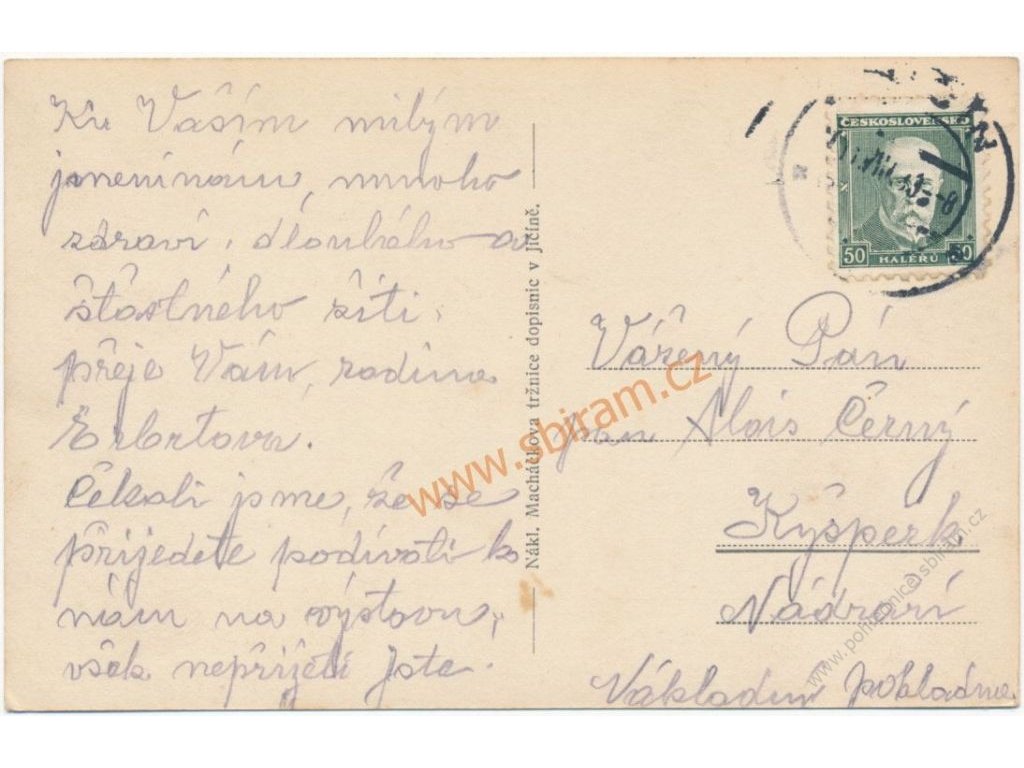 Ku Vaším milým
jmeninám, mnoho
zdraví, dlouhého a
štastného žití,
přeje Vám, rodina
Erbrtova.
Čekali jsme, že se
přijedete podívati k
nám na výstavu,
však nepřijeli jste.
Nákl. Macháčkova tržnice dopisnic v Jičíně.
ČESKOSLOVENSKO
50 HALÉŘŮ 50
Vážený Pán
pan Alois Černý
Kyšperk
Nádraží
Nákladní pokladna
www.sbiram.cz
www.pohlednice.sbiram.cz